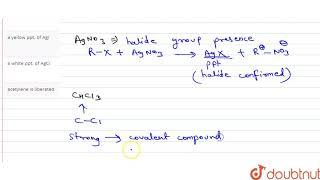 a yellow ppt. of AgI
a white ppt. of AgCl
acetylene is liberated
AgNO3 ⇒ halide group presence
R-X + AgNO3 → AgX + R⊕-NO3⊖
ppt
(halide confirmed)
CHCl3
↑
C-Cl
Strong → covalent compound
doubtnut